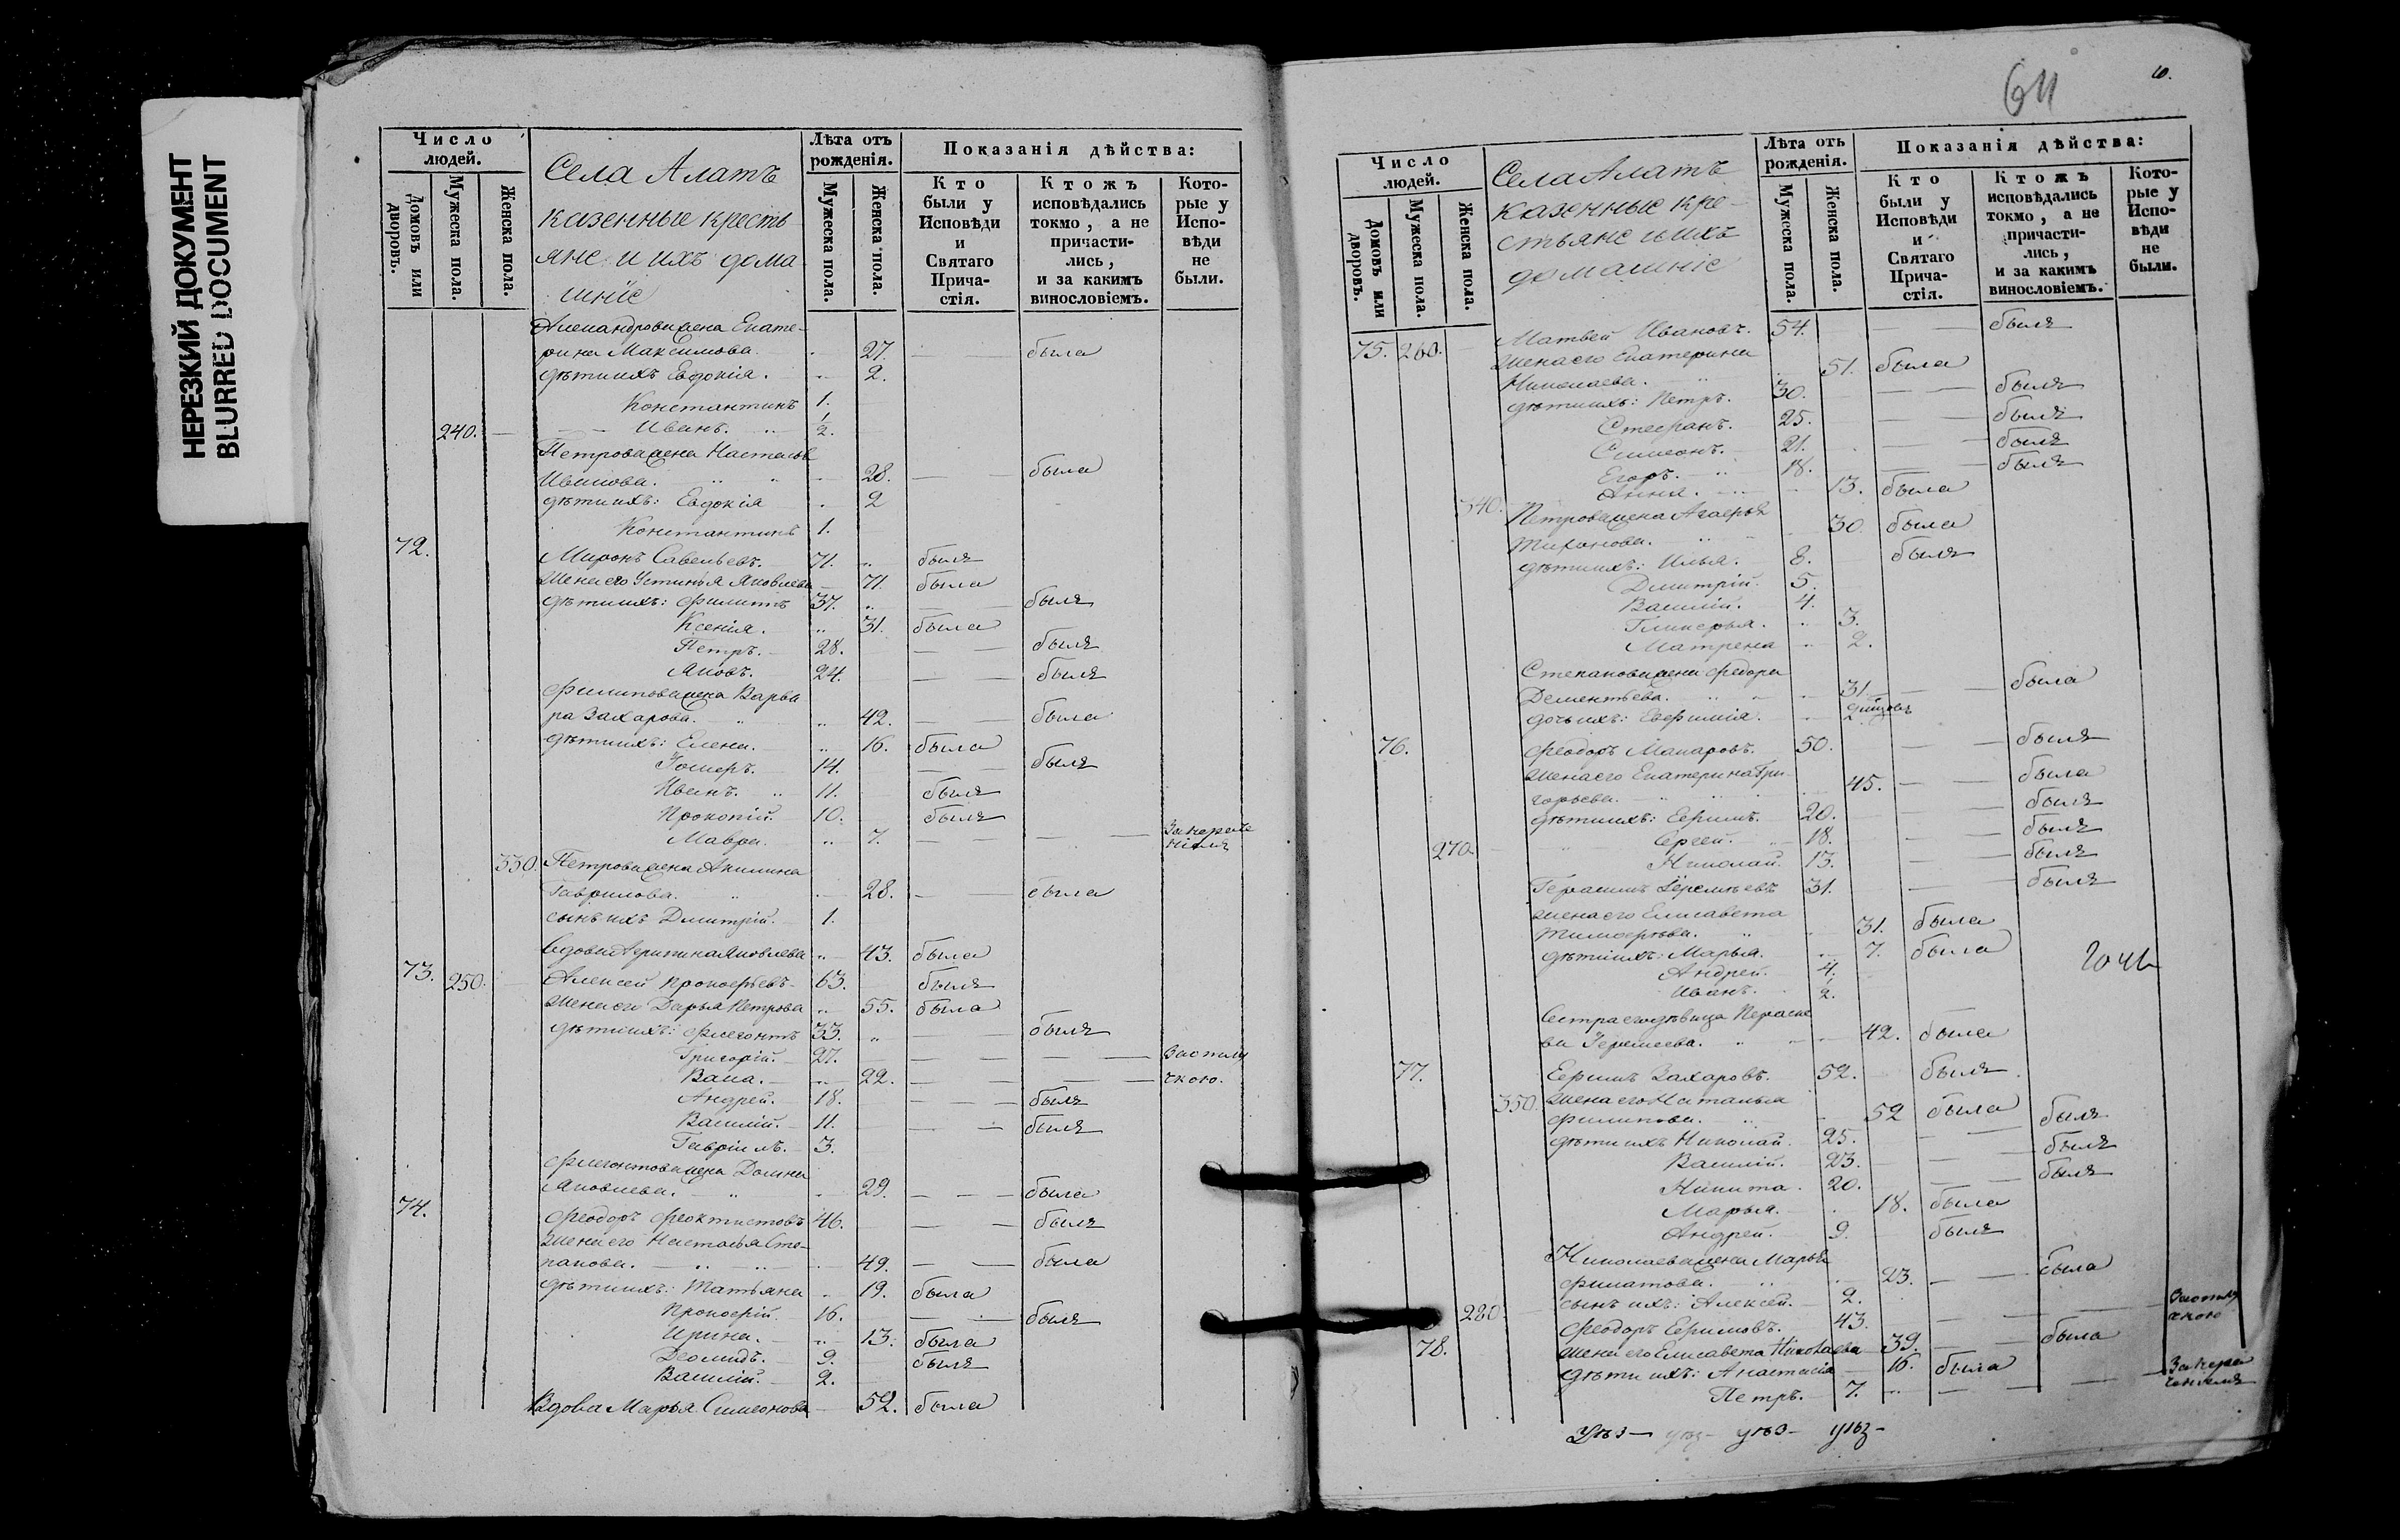 НЕРЕЗКИЙ ДОКУМЕНТ
BLURRED DOCUMENT
Число людей.
Домовъ или дворовъ.
Мужеска пола.
Женска пола.
Села Алатъ
казенные кресть-
яне и ихъ дома-
шніе
Лѣта отъ рожденія.
Мужеска пола.
Женска пола.
Показанія дѣйства:
Кто были у Исповѣди и Святаго Прича-стія.
Ктожъ исповѣдались токмо, а не причасти-лись, и за какимъ винословіемъ.
Кото-рые у Испо-вѣди не были.
Александрова жена Екате-
рина Максимова. 27. была
дѣти ихъ Евдокія. 2.
Константинъ 1.
240. Иванъ. 1/2.
Петрова жена Настасья
Иванова. 28. была
дѣти ихъ: Евдокія 2
Константинъ 1.
72. Миронъ Савельевъ. 71. былъ
Жена его Устинья Яковлева 71. была
дѣти ихъ: Филиппъ 37. былъ
Ксенія. 31. была
Петръ. 28. былъ
Яковъ. 24. былъ
Филипова жена Варва
ра Захарова. 42. была
дѣти ихъ: Елена. 16. была
14. былъ
Иванъ. 11. былъ
Прокопій. 10. былъ
Мавра. 7.
330. Петрова жена Акилина
Гаврилова. 28. была
сынъ ихъ Дмитрій. 1.
Вдова Агрипина Яковлева 43. была
73. 250. Алексей Прокофьевъ 63. былъ
Жена его Дарья Петрова 55. была
дѣти ихъ: Флегонтъ 33. былъ
Григорій. 27. За отлу
Васа. 22. чкою.
Андрей. 18. былъ
Василій. 11. былъ
Гавріилъ. 3.
Флегонтова жена Домна
Яковлева. 29. была
74. Феодоръ Феоктистовъ 46. былъ
Жена его Настасья Сте-
панова. 49. была
дѣти ихъ: Татьяна 19. была
Прокофій. 16. былъ
Ирина. 13. была
Деомидъ. 9. былъ
Василій. 2.
Вдова Марья Симеонова 52. была
611
Число людей.
Домовъ или дворовъ.
Мужеска пола.
Женска пола.
Села Алатъ
казенные кре-
стьяне и ихъ
домашніе
Лѣта отъ рожденія.
Мужеска пола.
Женска пола.
Показанія дѣйства:
Кто были у Исповѣди и Святаго Прича-стія.
Ктожъ исповѣдались токмо, а не причасти-лись, и за какимъ винословіемъ.
Кото-рые у Испо-вѣди не были.
75. 260. Матвей Ивановъ. 54. былъ
Жена его Екатерина
Николаева. 51. была
дѣти ихъ: Петръ. 30. былъ
Стефанъ. 25. былъ
Симеонъ. 21. былъ
Егоръ. 18. былъ
340. Анна. 13. была
Петрова жена Агафья
Тихонова. 30 была
дѣти ихъ: Илья. 8. былъ
Дмитрій. 5.
Василій. 4.
Гликерья. 3.
Матрена 2.
Степанова жена Федора
Дементьева. 31. была
дочь ихъ: Евфимія. 2
76. Феодоръ Макаровъ. 50. былъ
Жена его Екатерина Гри
горьева. 45. была
дѣти ихъ: Ефимъ. 20. былъ
270 Сергей. 18. былъ
Николай. 13. былъ
Герасимъ Еремѣевъ 31. былъ
Жена его Елисавета
Тимофѣева. 31. была
дѣти ихъ: Марья. 7. была
Андрей. 4.
Иванъ. 2.
Сестра его дѣвица Параске
ва 42. была
77. Ефимъ Захаровъ. 52. былъ
350. Жена его Наталья
Филипова. 52 была
дѣти ихъ Николай. 25. былъ
Василій. 23. былъ
Никита. 20. былъ
Марья. 18. была
Андрей. 9. былъ
Николаева жена Марья
Филатова. 23. была
сынъ ихъ: Алексей. 2.
78. 280. Феодоръ Ефимовъ. 43. За отлу
чкою
Жена его Елисавета Николаева 39. была
дѣти ихъ: Анастасія 16. была
Петръ. 7.